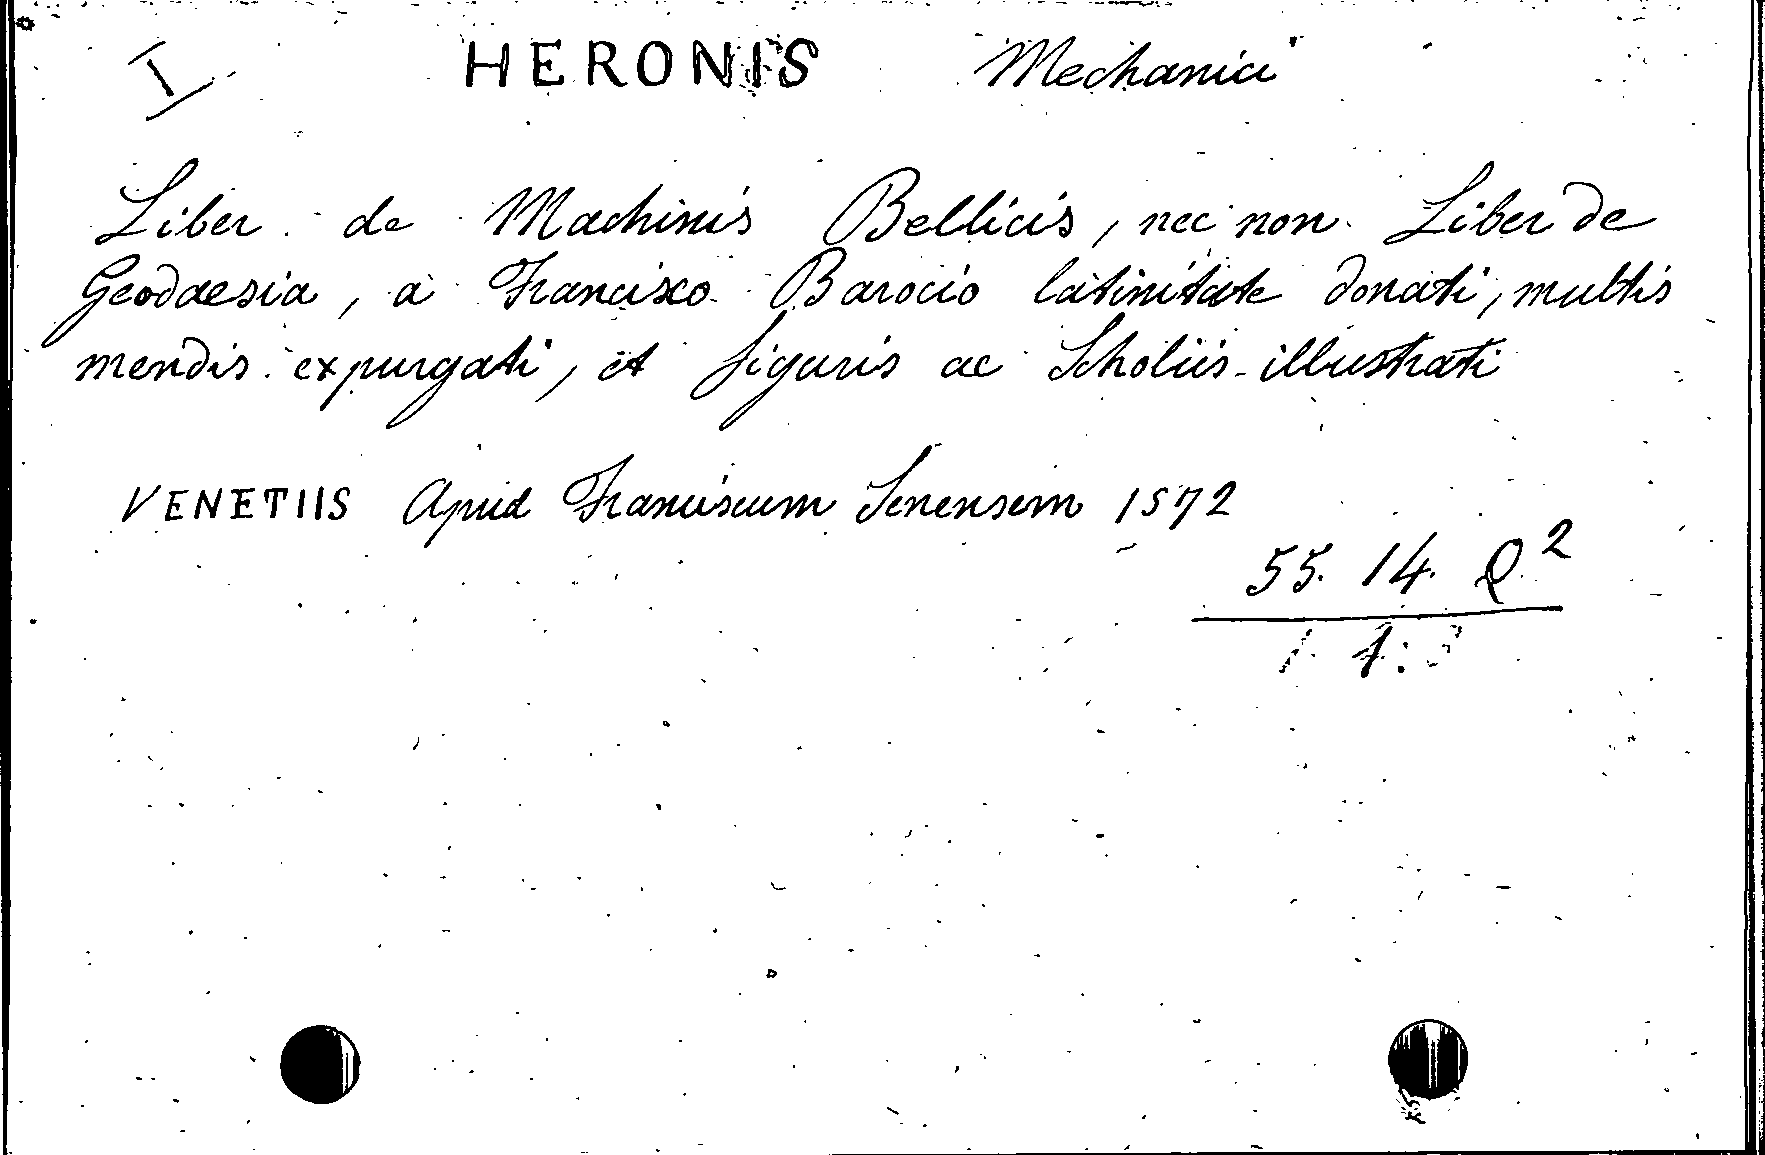 I HERONIS Mechanici
Liber de Machinis Bellicis, nec non Liber de
Geodaesia, a Francisco Barocio latinitate donati, multis
mendis expurgati, et figuris ac Scholiis illustrati
VENETIIS Apud Franciscum Senensem 1572
55. 14. Q 2
1. 4: 3